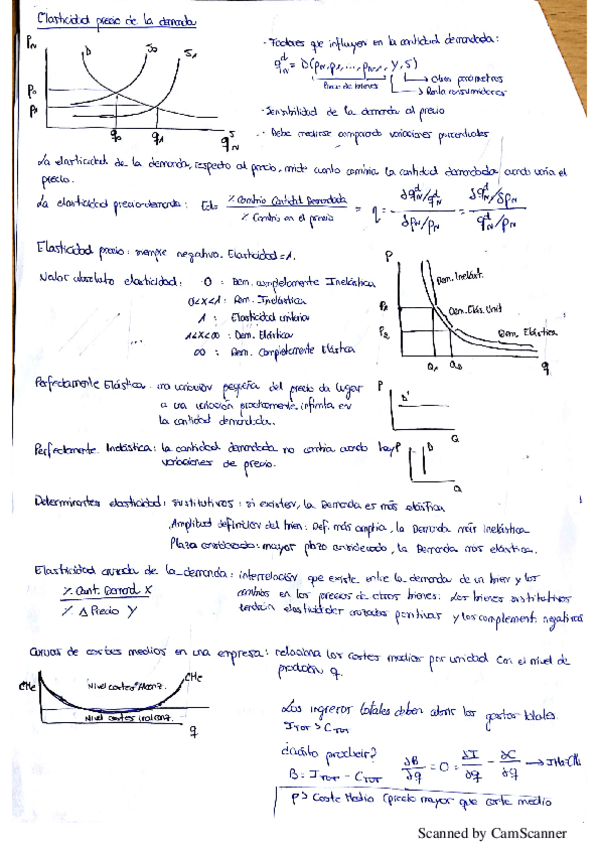 Elasticidad precio de la demanda
PN
D
S0
S1
P0
P1
q0
q1
qN
- Factores que influyen en la cantidad demandada:
= D(PN, P1, ..., PN-1, Y, S)
otros parámetros
Renta consumidores
- Sensibilidad de la demanda al precio
- Debe medirse comparando variaciones porcentuales
La elasticidad de la demanda, respecto al precio, mide cuanto cambia la cantidad demandada cuando varía el
precio.
La elasticidad precio-demanda: Ed = % Cambio Cantidad Demandada / % Cambio en el precio
Elasticidad precio: siempre negativo. Elasticidad = 1.
Valor absoluto elasticidad: 0 : Dem. completamente Inelástica
0<x<1 : Dem. Inelástica
1 : Elasticidad unitaria
1<x<∞ : Dem. Elástica
∞ : Dem. Completamente Elástica
P
Dem. Inelást.
Dem. Elás. Unit
Dem. Elástica
P1
P2
q
Perfectamente Elástica: una variación pequeña del precio da lugar
a una variación prácticamente infinita en
la cantidad demandada.
P
D'
Q
Perfectamente Inelástica: la cantidad demandada no cambia cuando hay
variaciones de precio.
P
D
Q
Determinantes elasticidad: sustitutivos: si existen, la Demanda es más elástica
Amplitud definición del bien: Def. más amplia, la Demanda más Inelástica
Plazo considerado: mayor plazo considerado, la Demanda más elástica.
Elasticidad cruzada de la demanda: interrelación que existe entre la demanda de un bien y los
cambios en los precios de otros bienes. Los bienes sustitutivos
tendrán elasticidades cruzadas positivas y los complement. negativas
% Cant. Demand. X
% Δ Precio Y
Curvas de costes medios en una empresa: relaciona los costes medios por unidad con el nivel de
producción q.
CMe
CMe
q
Los ingresos totales deben cubrir los gastos totales.
ITOT > CTOT
¿Cuánto producir?
B = ITOT - CTOT
∂B/∂q = 0 = ∂I/∂q - ∂C/∂q
P > Coste Medio (precio mayor que coste medio
Scanned by CamScanner